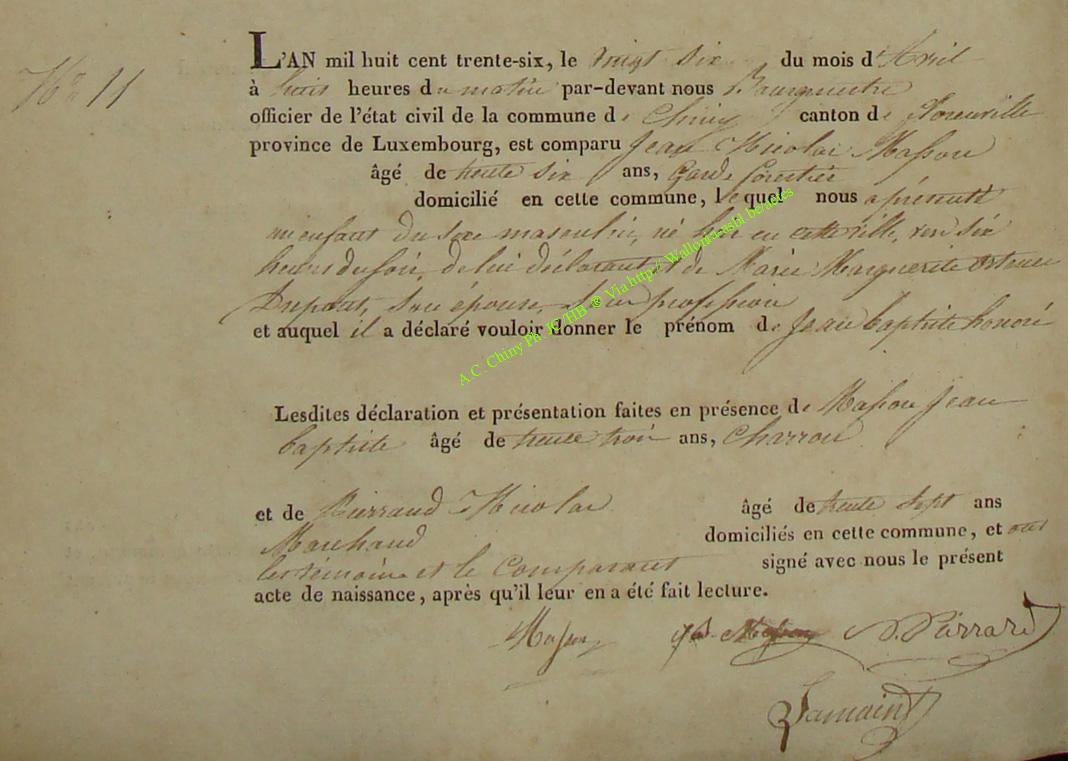 No 11
L'AN mil huit cent trente-six, le vingt six du mois d'Avril
à huit heures du matin par-devant nous Bourgmestre
officier de l'état civil de la commune de Chiny canton de Florenville
province de Luxembourg, est comparu Jean Nicolas Masson
âgé de trente six ans, Garde forestier
domicilié en cette commune, lequel nous a présenté
un enfant du sexe masculin, né hier en cette ville, vers six
heures du soir, de lui déclarant et de Marie Marguerite
Dupont, son épouse, profession
et auquel il a déclaré vouloir donner le prénom de Jean baptiste honoré
Lesdites déclaration et présentation faites en présence de Masson Jean
baptiste âgé de trente trois ans, Charron
et de Pierrard Nicolas âgé de trente sept ans
Marchand domiciliés en cette commune, et ont
les témoins et le Comparant signé avec nous le présent
acte de naissance, après qu'il leur en a été fait lecture.
Masson Masson N. Pierrard
Jamain
A.C. Chiny Ph. © Via http://Wallonia-asbl.be/actes